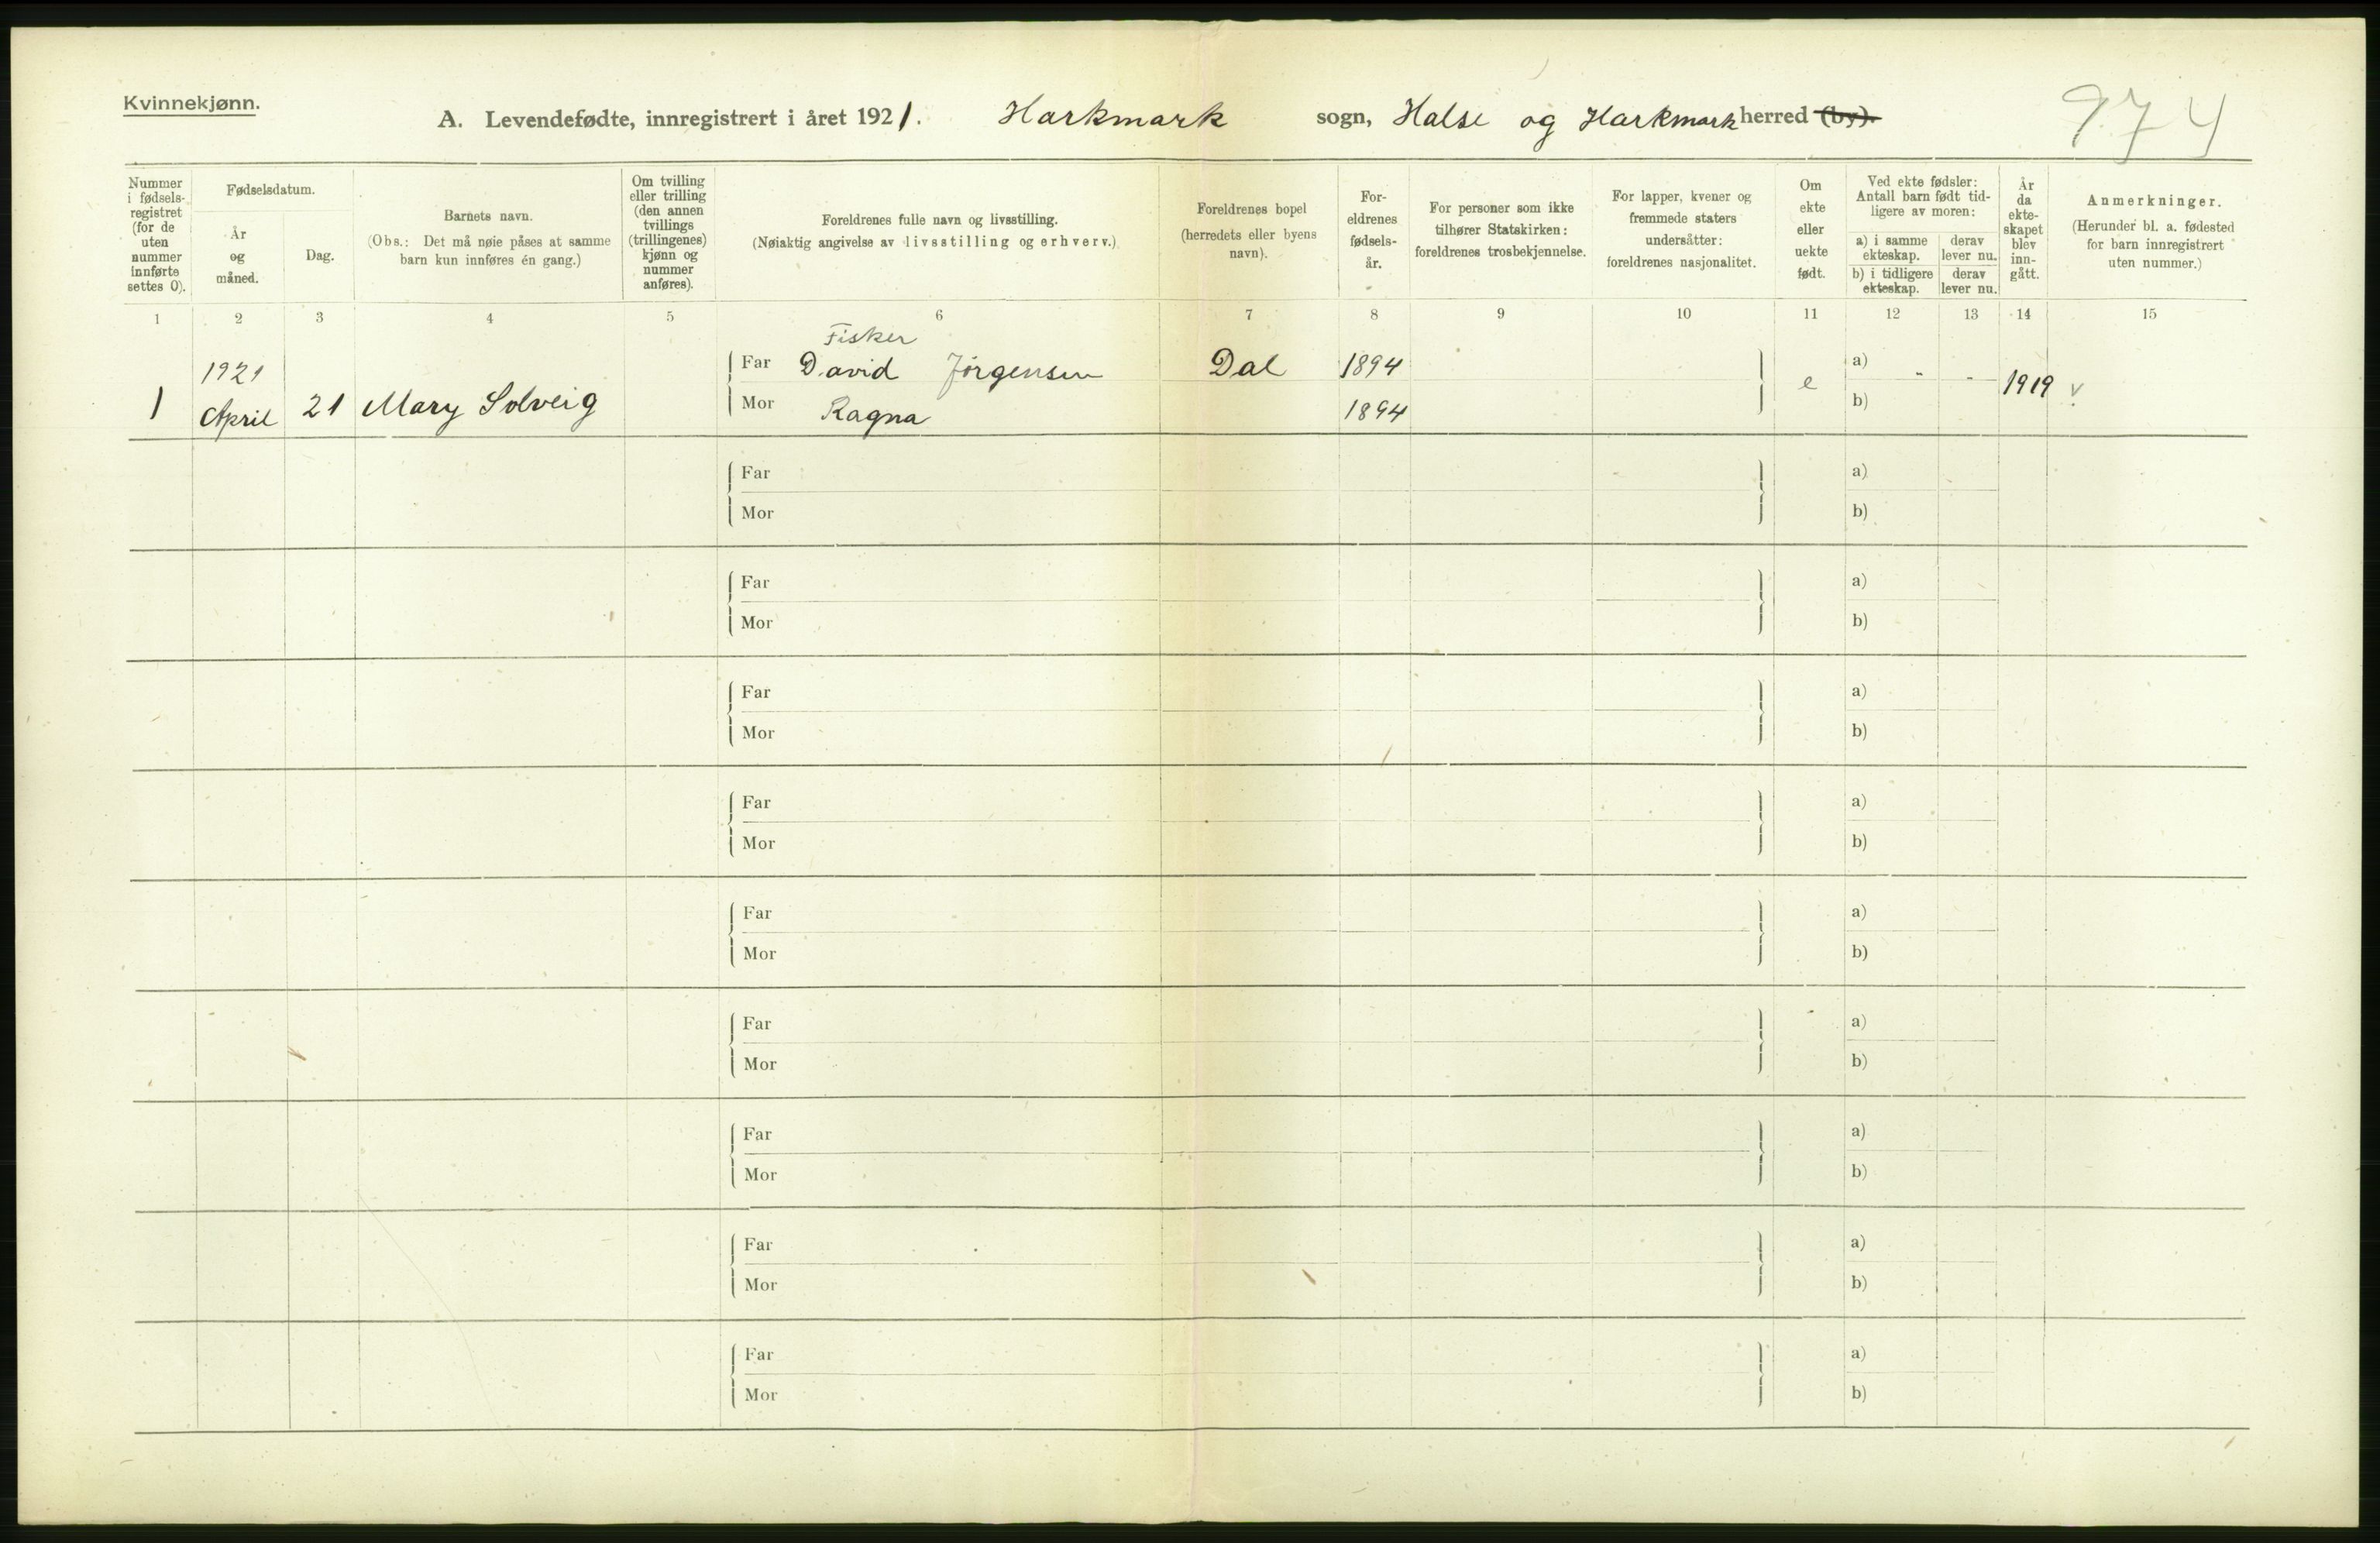 Kvinnekjønn.
A. Levendefødte, innregistrert i året 1921. Harkmark sogn, Halse og Harkmark herred (by).
974
Nummer i fødsels-registret (for de uten nummer innførte settes 0).
Fødselsdatum.
År og måned.
Dag.
Barnets navn.
(Obs.: Det må nøie påses at samme barn kun innføres én gang.)
Om tvilling eller trilling (den annen tvillings (trillingenes) kjønn og nummer anføres).
Foreldrenes fulle navn og livsstilling.
(Nøiaktig angivelse av livsstilling og erhverv.)
Foreldrenes bopel (herredets eller byens navn).
For-eldrenes fødsels-år.
For personer som ikke tilhører Statskirken: foreldrenes trosbekjennelse.
For lapper, kvener og fremmede staters undersåtter: foreldrenes nasjonalitet.
Om ekte eller uekte født.
Ved ekte fødsler: Antall barn født tid-ligere av moren:
a) i samme ekteskap.
derav lever nu.
b) i tidligere ekteskap.
derav lever nu.
År da ekte-skapet blev inn-gått.
Anmerkninger.
(Herunder bl. a. fødested for barn innregistrert uten nummer.)
1 2 3 4 5 6 7 8 9 10 11 12 13 14 15
Fisker
1921 Far David Jørgensen Dal 1894 e a) " - 1919 v
1 April 21 Mary Solveig Mor Ragna 1894 b)
Far a)
Mor b)
Far a)
Mor b)
Far a)
Mor b)
Far a)
Mor b)
Far a)
Mor b)
Far a)
Mor b)
Far a)
Mor b)
Far a)
Mor b)
Far a)
Mor b)